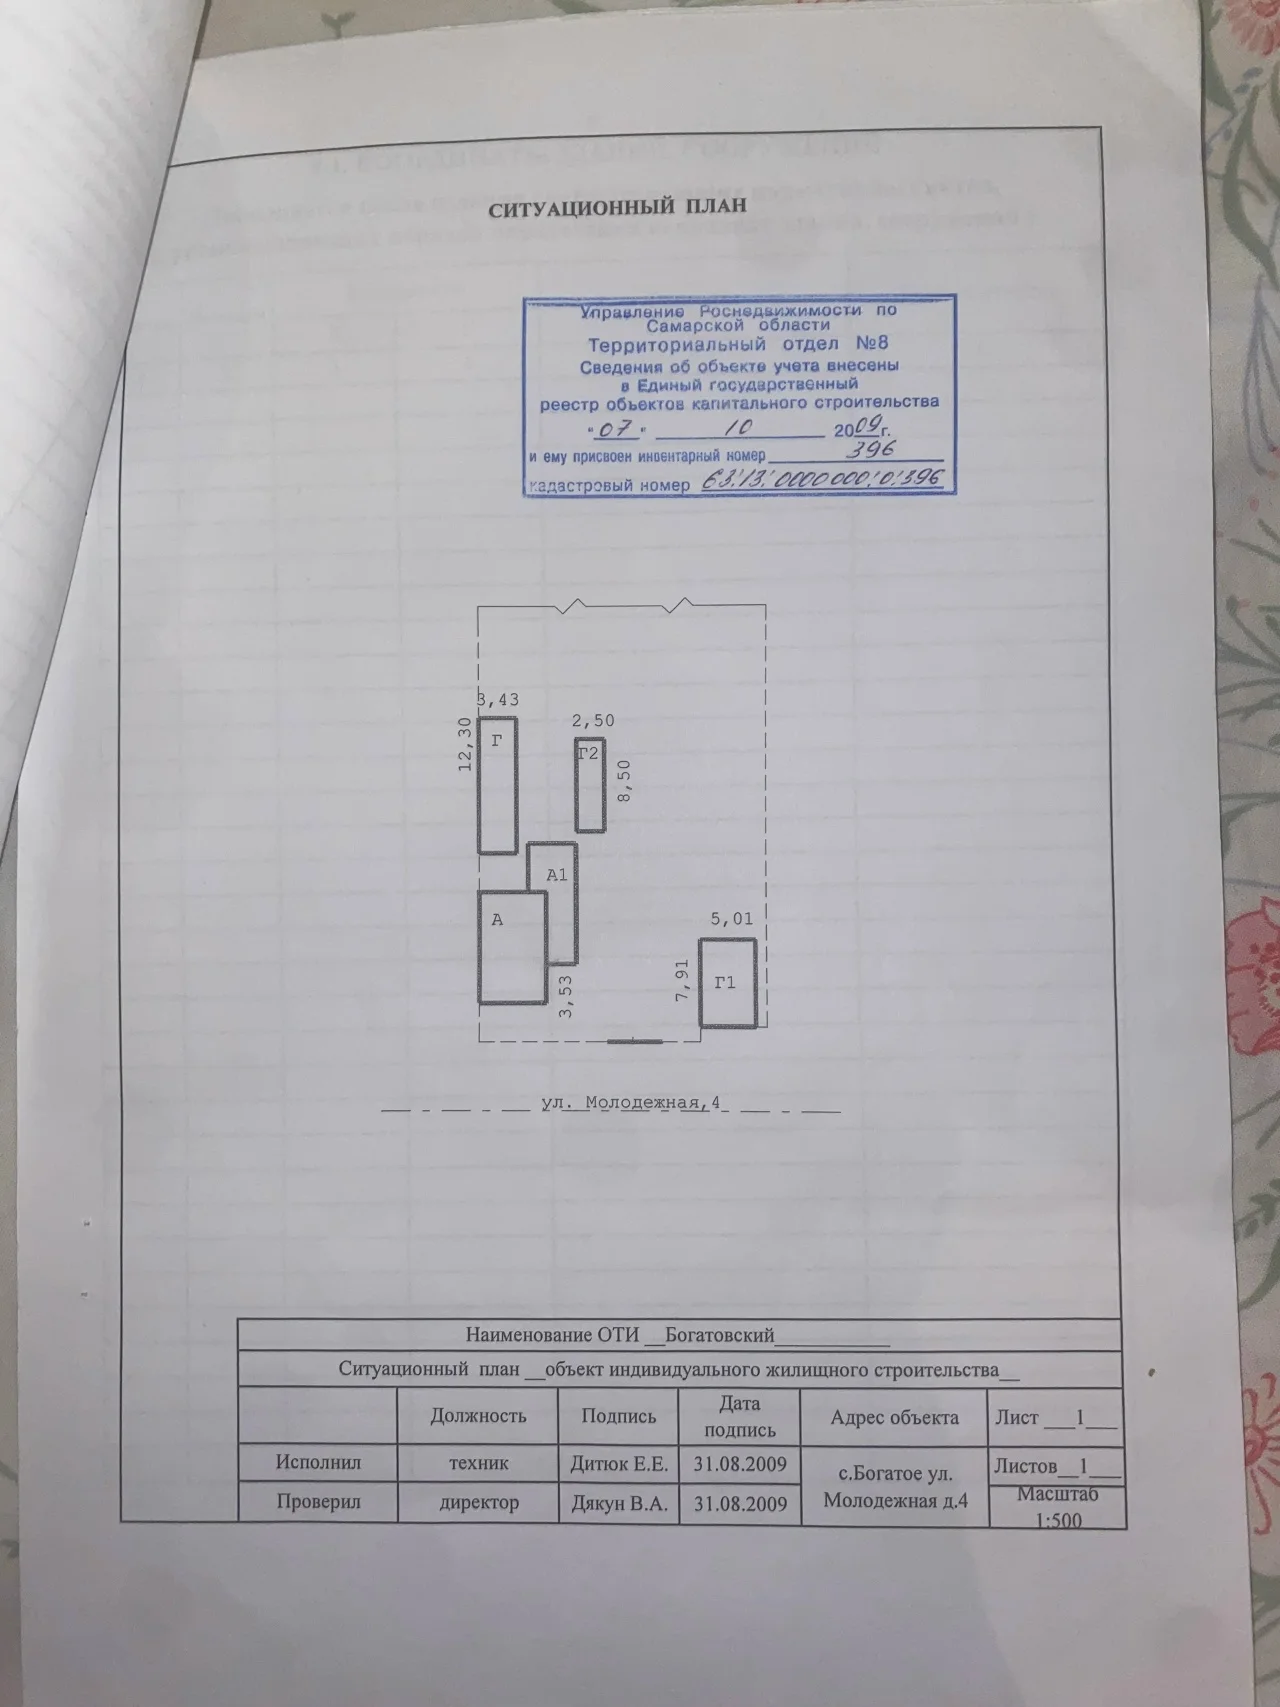 СИТУАЦИОННЫЙ ПЛАН
Управление Роснедвижимости по
Самарской области
Территориальный отдел №8
Сведения об объекте учета внесены
в Единый государственный
реестр объектов капитального строительства
"07" 10 2009г.
и ему присвоен инвентарный номер 396
кадастровый номер 63:13:0000000:0:396
3,43
12,30
Г
2,50
Г2
8,50
А1
А
3,53
5,01
7,91
Г1
ул. Молодежная,4
Наименование ОТИ __Богатовский
Ситуационный план __объект индивидуального жилищного строительства__
Должность Подпись Дата подпись Адрес объекта Лист ___1___
Исполнил техник Дитюк Е.Е. 31.08.2009 с.Богатое ул. Листов__1___
Проверил директор Дякун В.А. 31.08.2009 Молодежная д.4 Масштаб
1:500